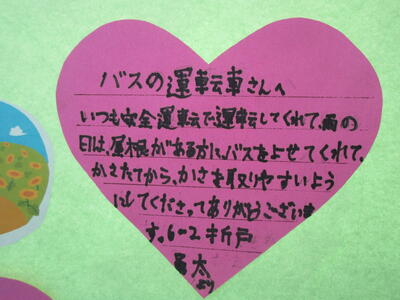 バスの運転車さんへ
いつも安全運転で運転してくれて、雨の
日は、屋根がある方に、バスをよせてくれて、
かさたてから、かさを取りやすいよう
にしてくださってありがとうございま
す。6-2 折戸
太より